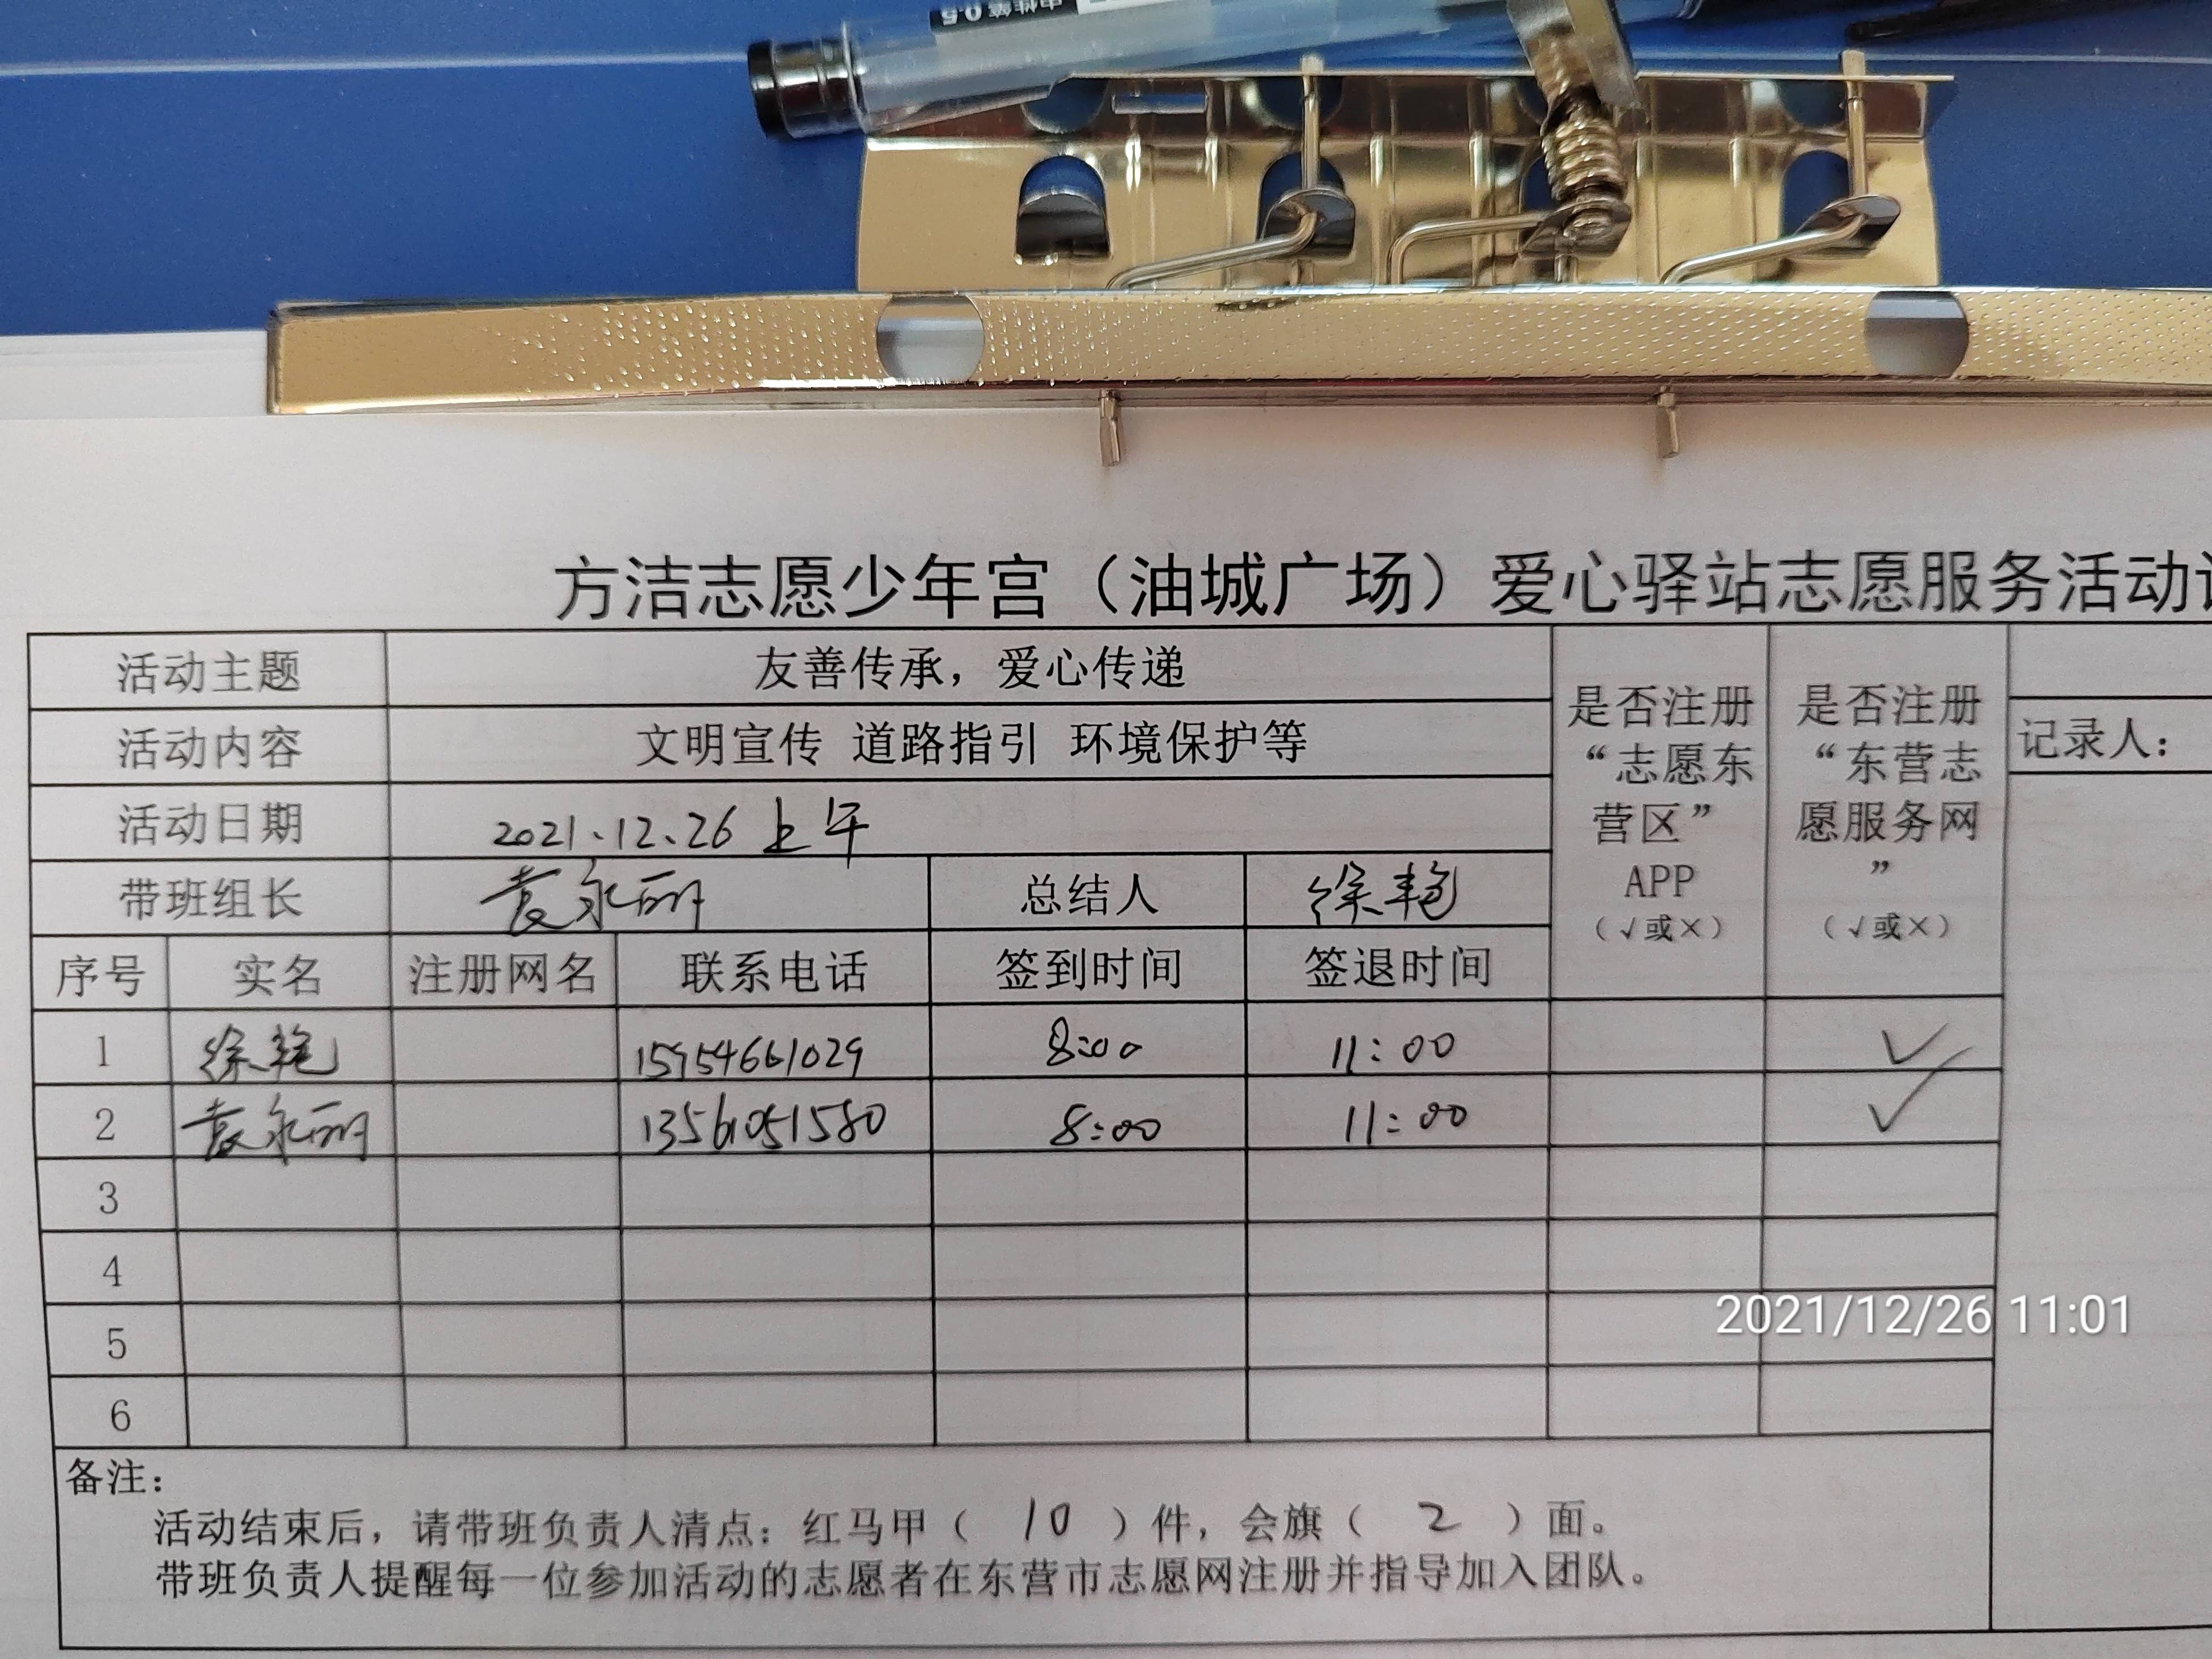 中性笔 0.5
方洁志愿少年宫（油城广场）爱心驿站志愿服务活动
活动主题 友善传承，爱心传递
活动内容 文明宣传 道路指引 环境保护等
活动日期 2021.12.26 上午
带班组长 袁永丽 总结人 徐艳
是否注册
“志愿东
营区”
APP
（√或×）
是否注册
“东营志
愿服务网
”
（√或×）
记录人：
序号 实名 注册网名 联系电话 签到时间 签退时间
1 徐艳 15954661029 8:00 11:00 ✓
2 袁永丽 13561051580 8:00 11:00 ✓
3
4
5
6
2021/12/26 11:01
备注：
活动结束后，请带班负责人清点：红马甲（ 10 ）件，会旗（ 2 ）面。
带班负责人提醒每一位参加活动的志愿者在东营市志愿网注册并指导加入团队。